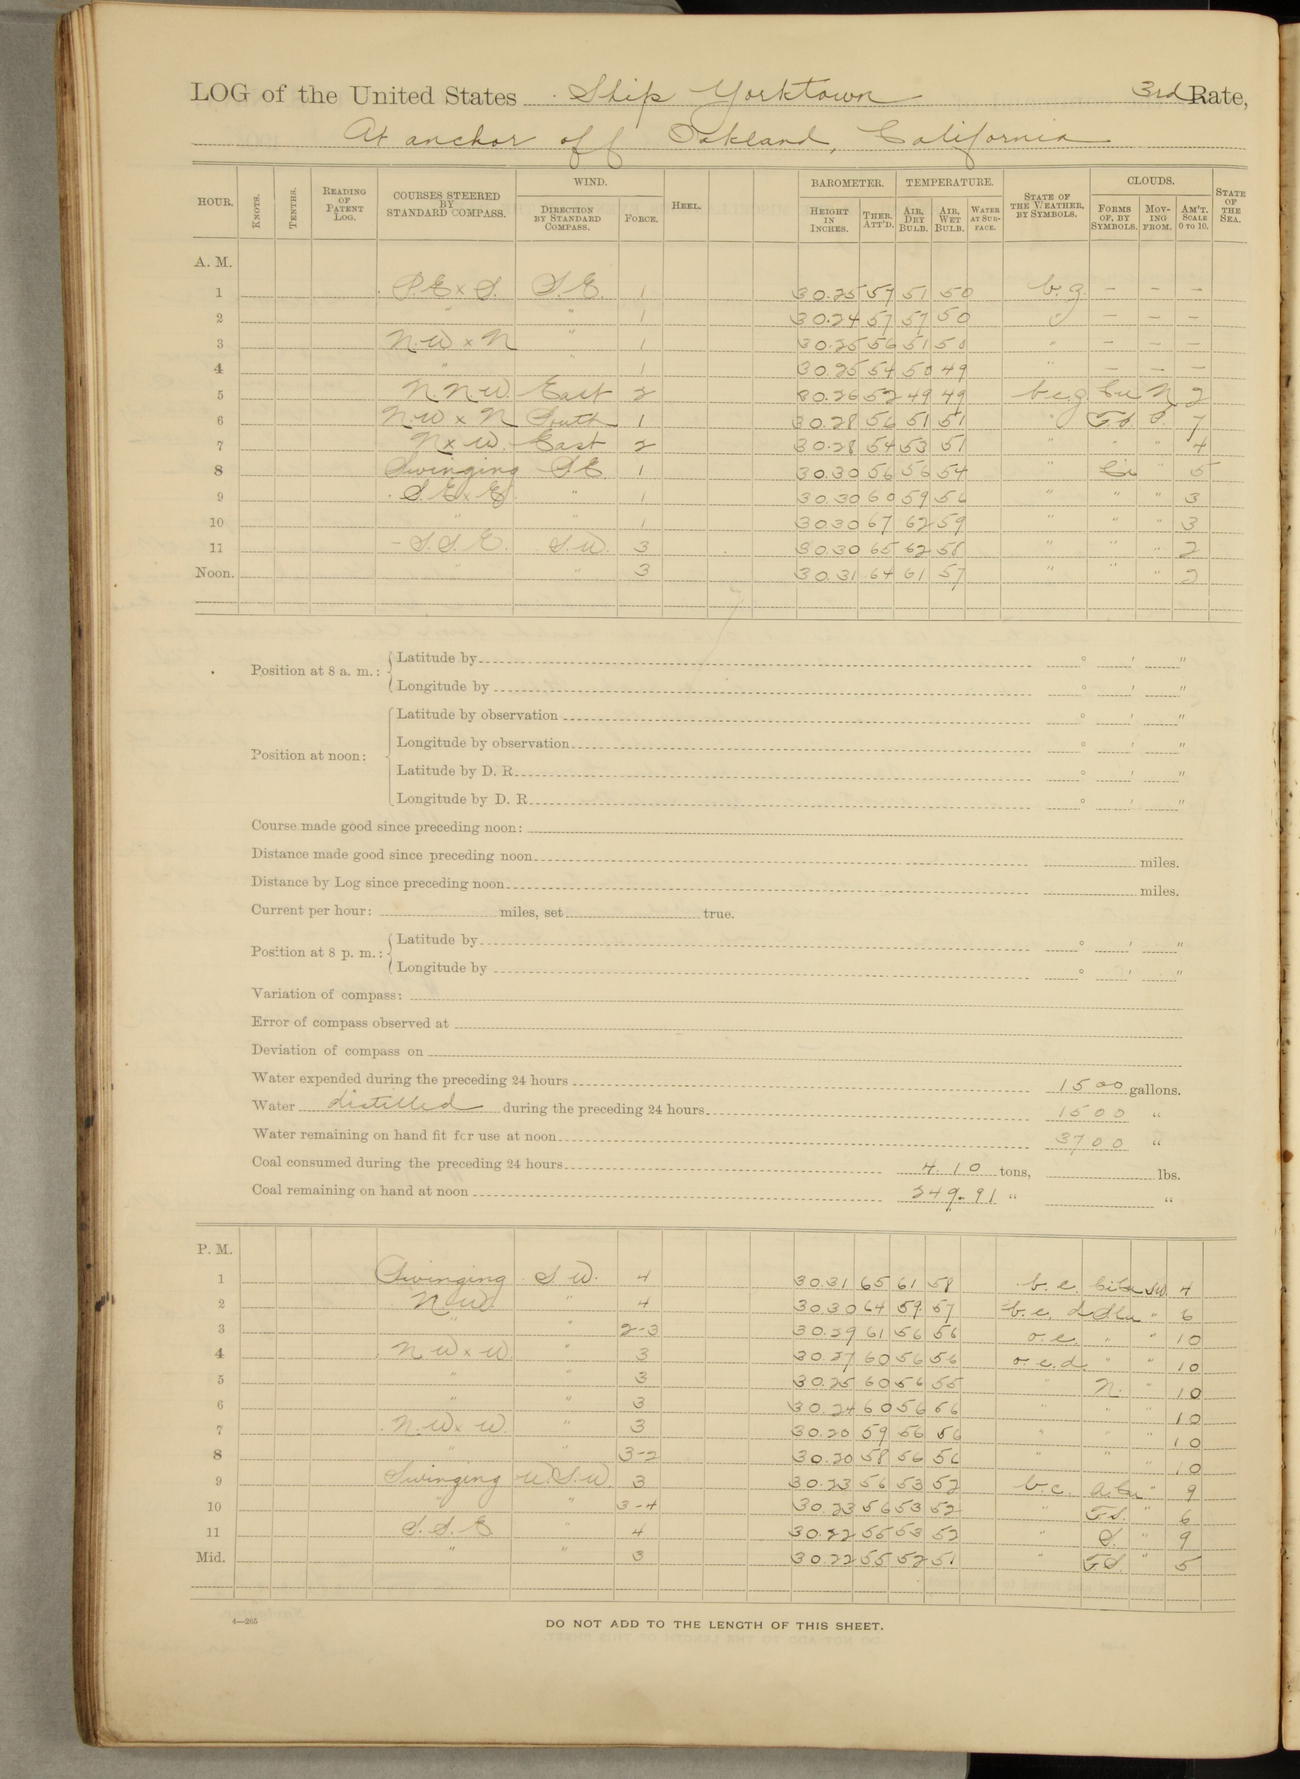 LOG of the United States Ship Yorktown 3rd Rate,
At anchor off Oakland, California
HOUR. KNOTS. TENTHS. READING OF PATENT LOG. COURSES STEERED BY STANDARD COMPASS. WIND. DIRECTION BY STANDARD COMPASS. FORCE. HEEL. BAROMETER. HEIGHT IN INCHES. THER. ATT'D. TEMPERATURE. AIR, DRY BULB. AIR, WET BULB. WATER AT SURFACE. STATE OF THE WEATHER, BY SYMBOLS. CLOUDS. FORMS OF, BY SYMBOLS. MOVING FROM. AM'T. SCALE 0 TO 10. STATE OF THE SEA.
A. M.
1 S.E x S. S.E. 1 30.25 57 51 50 b.g. — — —
2 " " 1 30.24 57 57 50 " — — —
3 N.W x N " 1 30.25 56 51 50 " — — —
4 " " 1 30.25 54 50 49 " — — —
5 N.N.W. East 2 30.26 52 49 49 b.c.g Cu N 2
6 N.W x N South 1 30.28 56 51 51 " S. 7
7 N x W. East 2 30.28 54 53 51 " " " 4
8 Swinging S.E. 1 30.30 56 56 54 " Ci " 5
9 S.E x E " 1 30.30 60 59 56 " " " 3
10 " " 1 30.30 67 62 59 " " " 3
11 S.S.E. S.W. 3 30.30 65 62 58 " " " 2
Noon. " " 3 30.31 64 61 57 " " " 2
Position at 8 a. m.: Latitude by ° ′ ″
Longitude by ° ′ ″
Position at noon: Latitude by observation ° ′ ″
Longitude by observation ° ′ ″
Latitude by D. R. ° ′ ″
Longitude by D. R. ° ′ ″
Course made good since preceding noon:
Distance made good since preceding noon miles.
Distance by Log since preceding noon miles.
Current per hour: miles, set true.
Position at 8 p. m.: Latitude by ° ′ ″
Longitude by ° ′ ″
Variation of compass:
Error of compass observed at
Deviation of compass on
Water expended during the preceding 24 hours 1500 gallons.
Water distilled during the preceding 24 hours 1500 "
Water remaining on hand fit for use at noon 3700 "
Coal consumed during the preceding 24 hours 4.10 tons, lbs.
Coal remaining on hand at noon 249.91 " "
P. M.
1 Swinging S.W. 4 30.31 65 61 58 b.c. SW. 4
2 N.W. " 4 30.30 64 59 57 b.c. " 6
3 " " 2-3 30.29 61 56 56 o.c. " " 10
4 N.W x W. " 3 30.27 60 56 56 o.c.d. " " 10
5 " " 3 30.25 60 56 55 " N. " 10
6 " " 3 30.24 60 56 56 " " " 10
7 N.W x W. " 3 30.20 59 56 56 " " " 10
8 " " 3-2 30.20 58 56 56 " " " 10
9 Swinging W.S.W. 3 30.23 56 53 52 b.c. " 9
10 " " 3-4 30.23 56 53 52 " " 6
11 S.S.E. " 4 30.22 55 53 52 " S. " 9
Mid. " " 3 30.22 55 52 51 " " 5
4—265
DO NOT ADD TO THE LENGTH OF THIS SHEET.